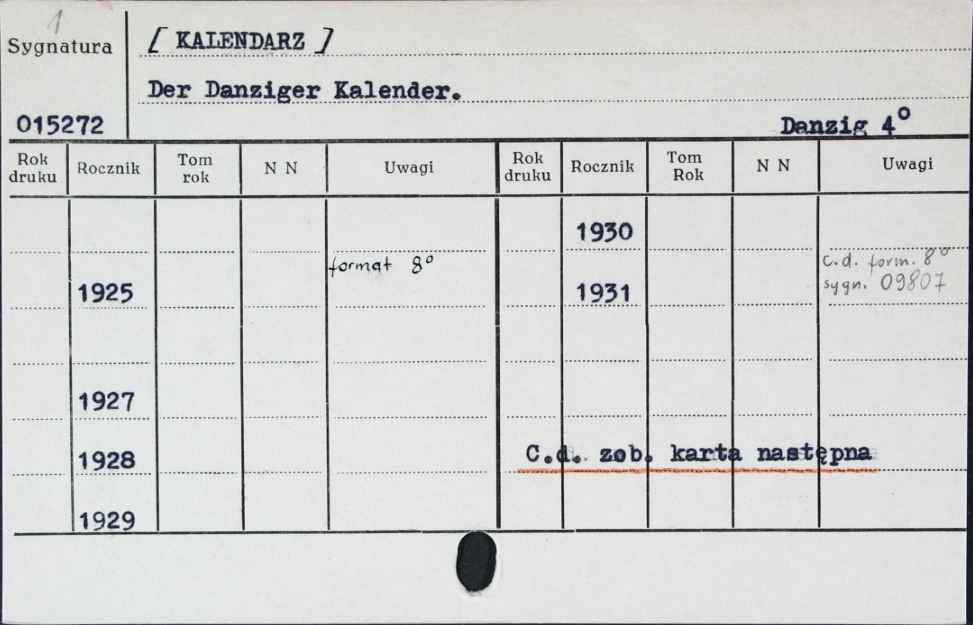 1
Sygnatura
[ KALENDARZ ]
Der Danziger Kalender.
015272
Danzig 4°
Rok druku
Rocznik
Tom rok
N N
Uwagi
Rok druku
Rocznik
Tom Rok
N N
Uwagi
1930
format 8°
c.d. form. 8°
1925
1931
sygn. 09807
1927
1928
C.d. zob. karta następna
1929